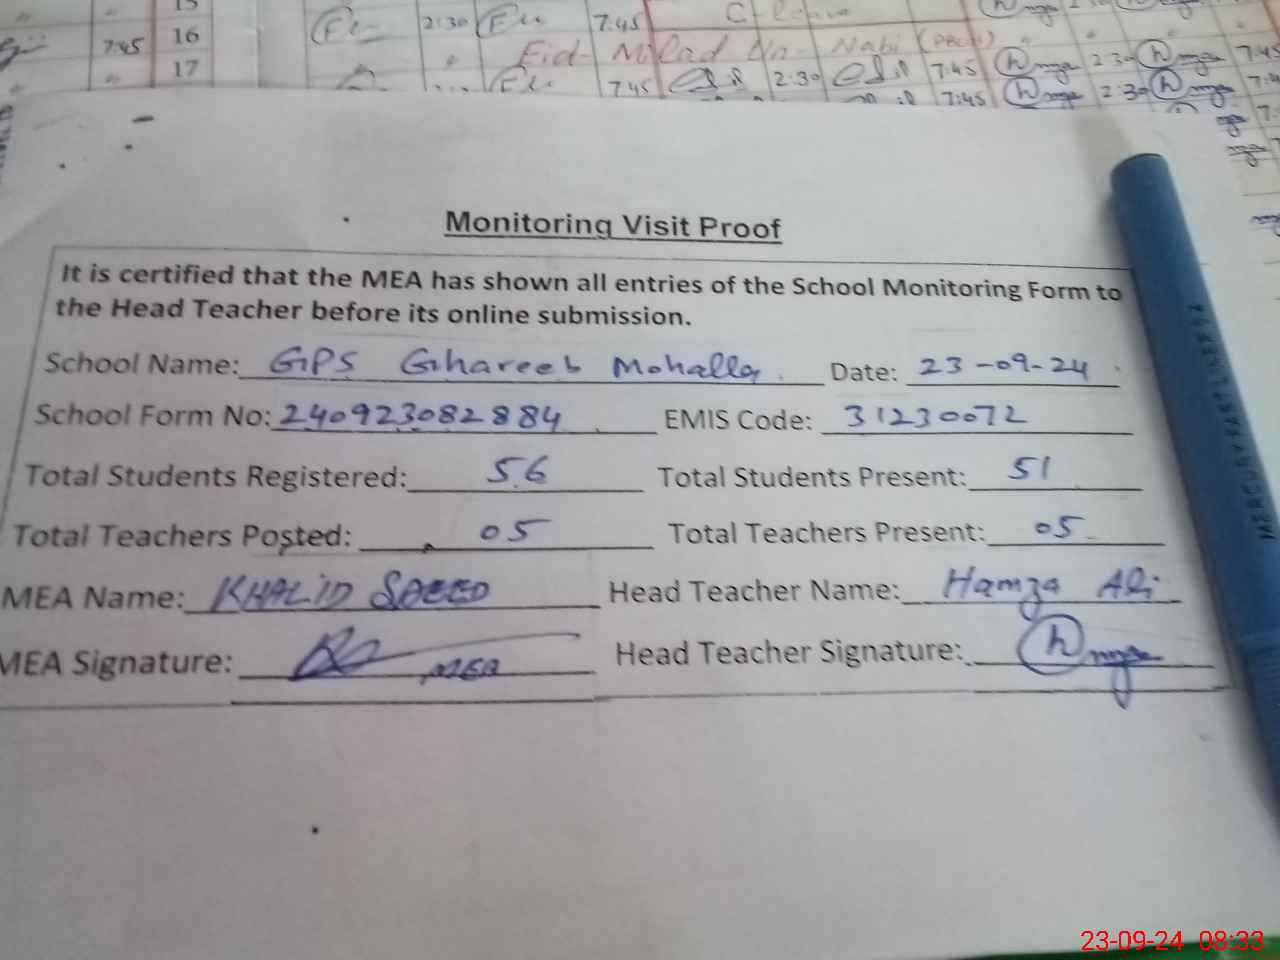 15 2:30 7.45
7:45 16 Eid- Milad Un- Nabi 2:30 7:45
17 7:45 2:30 7:45 2:30
7:45
Monitoring Visit Proof
It is certified that the MEA has shown all entries of the School Monitoring Form to
the Head Teacher before its online submission.
School Name: GPS Ghareeb Mohalla. Date: 23-09-24
School Form No: 240923082884 EMIS Code: 31230072
Total Students Registered: 56 Total Students Present: 51
Total Teachers Posted: 05 Total Teachers Present: 05
MEA Name: KHALID SAEED Head Teacher Name: Hamza Ali
MEA Signature: MEA Head Teacher Signature: Hamza
MERCURY
23-09-24 08:33